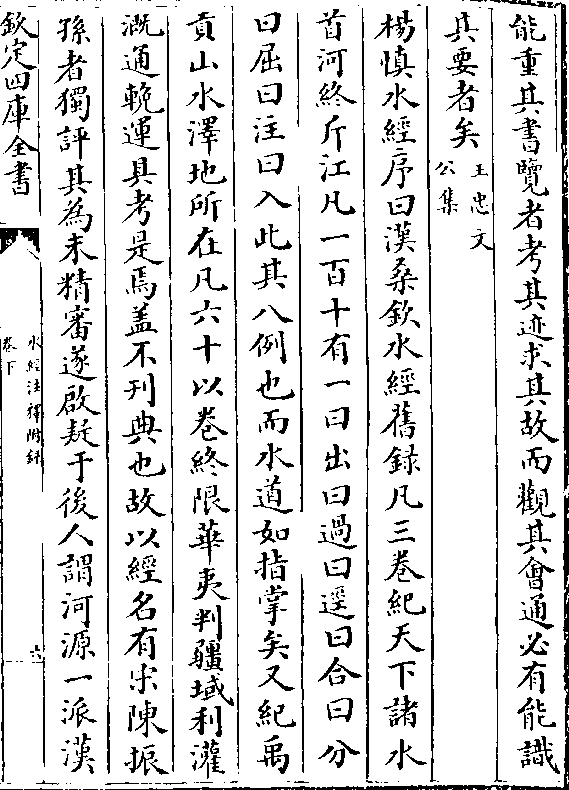 能重其書覽者考其迹求其故而觀其會通必有能識
其要者矣王忠文公集
楊慎水經序曰漢桑欽水經舊録凡三卷紀天下諸水
首河終斤江凡一百十有一曰出曰過曰逕曰合曰分
曰屈曰注曰入此其八例也而水道如指掌矣又紀禹
貢山水澤地所在凡六十以卷終限華夷判疆域利灌
溉通輓運具考是焉盖不刊典也故以經名有宋陳振
孫者獨評其為未精審遂啟疑于後人謂河源一派漢
欽定四庫全書
水經注釋附録
卷下
六